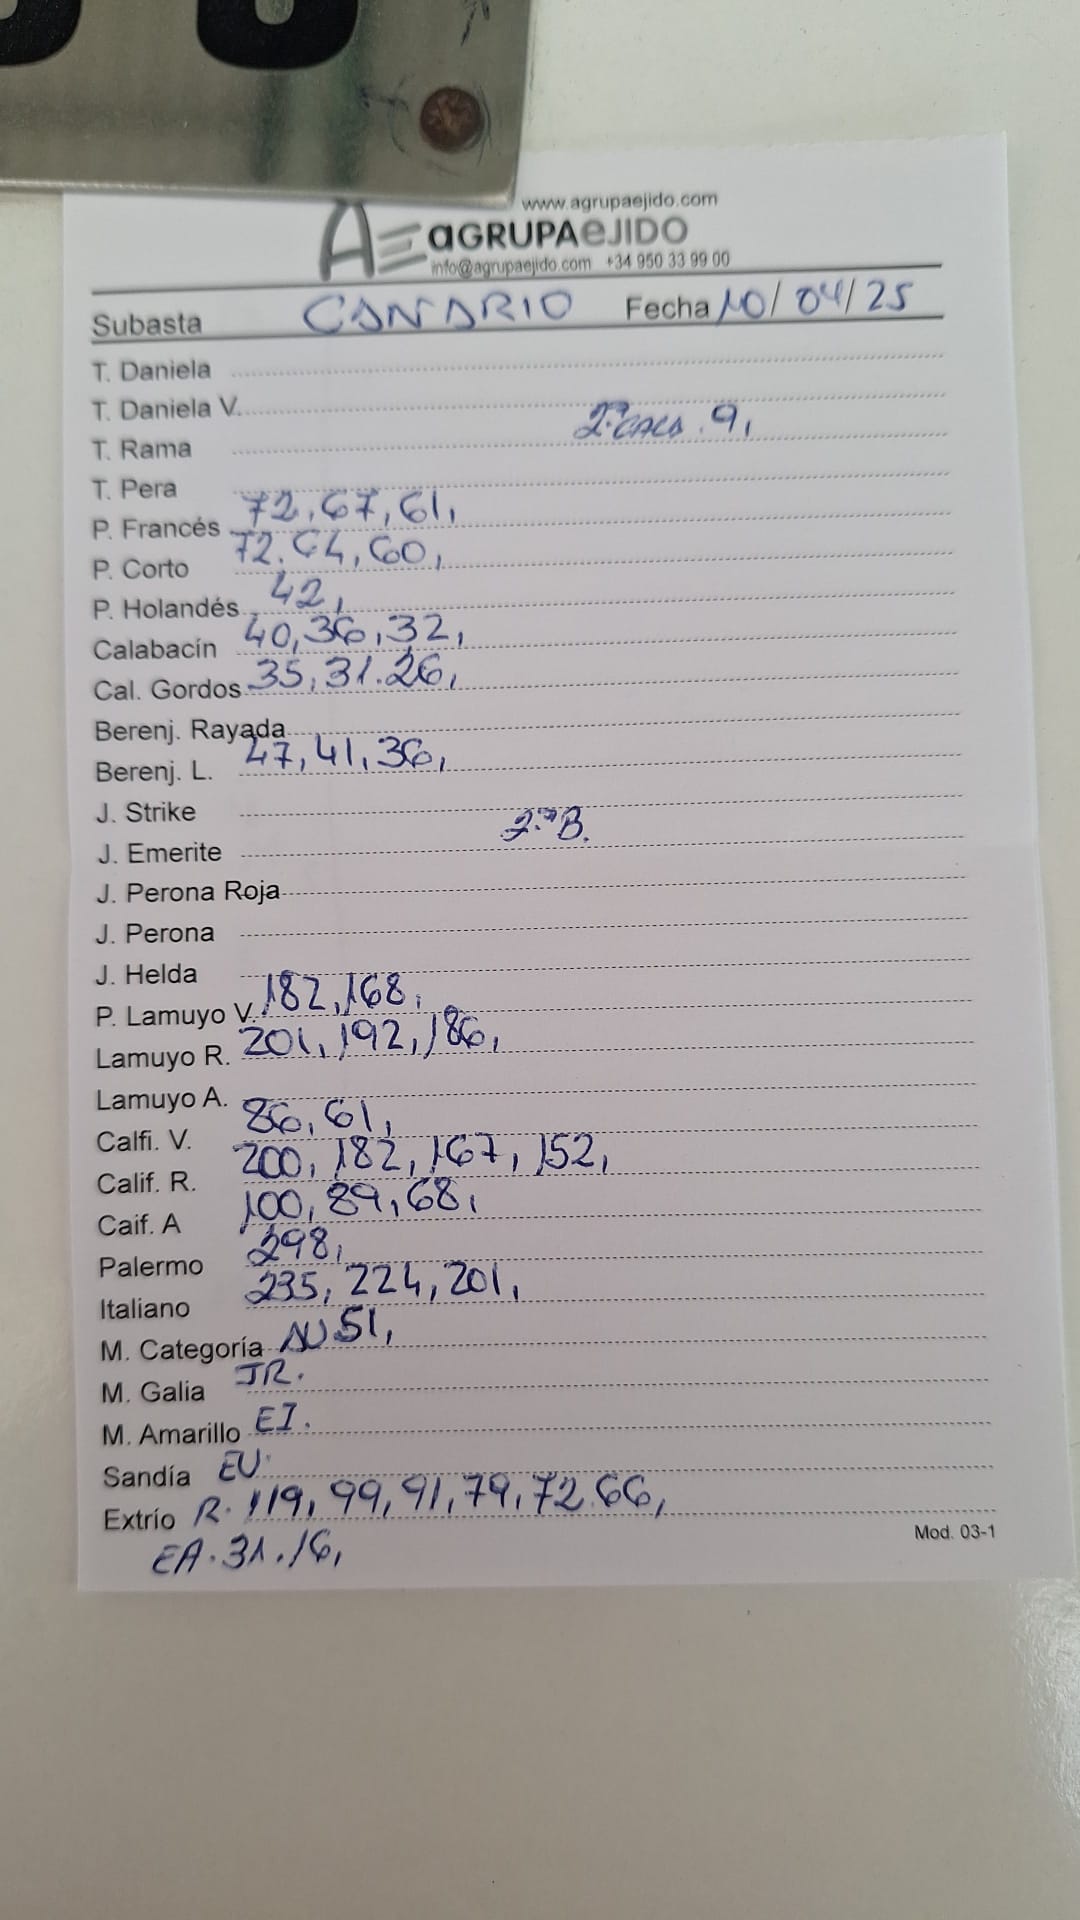 www.agrupaejido.com
AE aGRUPAeJIDO
info@agrupaejido.com +34 950 33 99 00
Subasta CANARIO Fecha 10/04/25
T. Daniela
T. Daniela V.
T. Rama 2ª CALA. 9,
T. Pera
P. Francés 72, 67, 61,
P. Corto 72. 64, 60,
P. Holandés 42,
Calabacín 40, 36, 32,
Cal. Gordos 35, 31. 26,
Berenj. Rayada
Berenj. L. 47, 41, 36,
J. Strike
J. Emerite 2.ª B.
J. Perona Roja
J. Perona
J. Helda
P. Lamuyo V. 182, 168,
Lamuyo R. 201, 192, 186,
Lamuyo A.
Calfi. V. 86, 61,
Calif. R. 200, 182, 167, 152,
Caif. A 100, 89, 68,
Palermo 298,
Italiano 235, 224, 201,
M. Categoría NU 51,
M. Galia JR.
M. Amarillo EI.
Sandía EU.
Extrío R. 119, 99, 91, 79, 72. 66,
EA. 31. 16,
Mod. 03-1